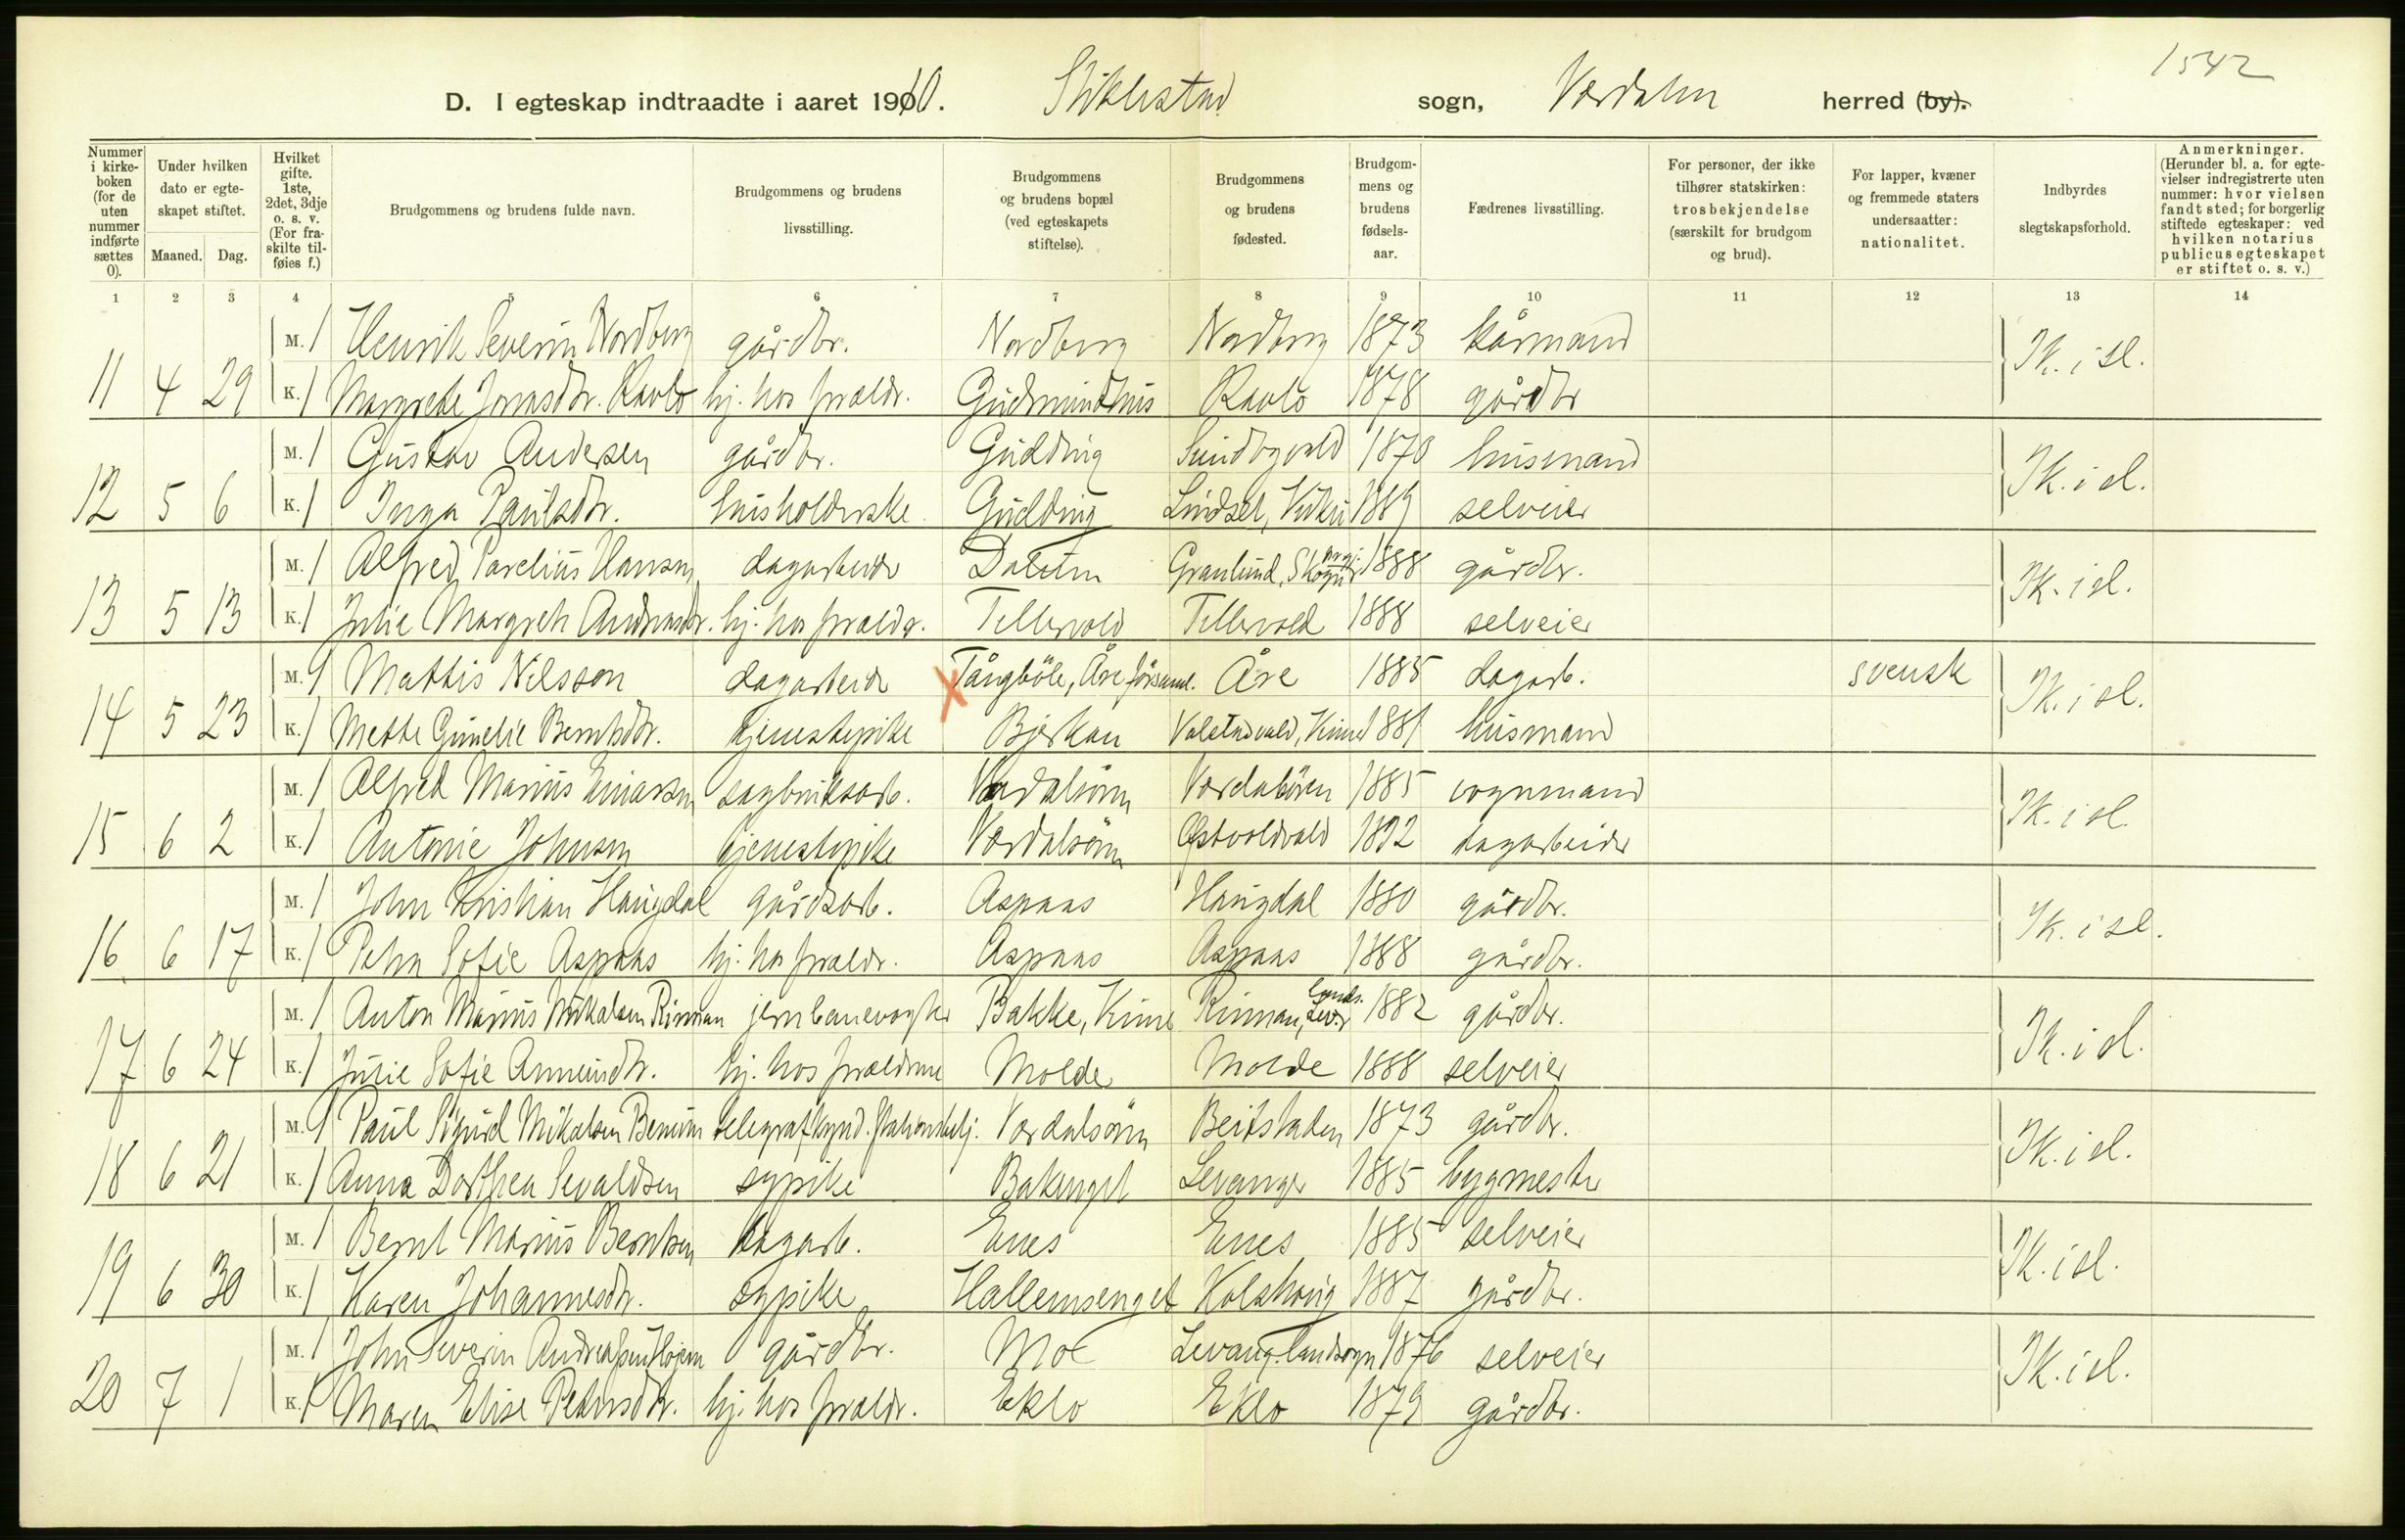 1542
D. I egteskap indtraadte i aaret 1910. Stiklestad sogn, Værdalen herred (by).
Nummer i kirkeboken (for de uten nummer indførte sættes 0).
Under hvilken dato er egteskapet stiftet.
Maaned. Dag.
Hvilket gifte. 1ste, 2det, 3dje o. s. v. (For fraskilte tilføies f.)
Brudgommens og brudens fulde navn.
Brudgommens og brudens livsstilling.
Brudgommens og brudens bopæl (ved egteskapets stiftelse).
Brudgommens og brudens fødested.
Brudgommens og brudens fødselsaar.
Fædrenes livsstilling.
For personer, der ikke tilhører statskirken: trosbekjendelse (særskilt for brudgom og brud).
For lapper, kvæner og fremmede staters undersaatter: nationalitet.
Indbyrdes slegtskapsforhold.
Anmerkninger. (Herunder bl. a. for egtevielser indregistrerte uten nummer: hvor vielsen fandt sted; for borgerlig stiftede egteskaper: ved hvilken notarius publicus egteskapet er stiftet o. s. v.)
1 2 3 4 5 6 7 8 9 10 11 12 13 14
M. 1 Henrik Severin Nordberg gårdbr. Nordberg Nordberg 1873 kårmand Ik. i sl.
11 4 29 K. 1 Margrete Jonasdtr. Ravlo hj. hos forældr. Gudmundhus Ravlo 1878 gårdbr
M. 1 Gustav Andersen gårdbr. Gudding Sundbyvald 1870 husmand Ik. i sl.
12 5 6 K. 1 Inga Paulsdtr. husholderske Gudding Lindset, Vuku 1889 selveier
M. 1 Alfred Parelius Hansen dagarbeider Dalema Granlund, Skogn 1888 gårdbr. Ik. i sl.
13 5 13 K. 1 Julie Margreth Andreasdtr. hj. hos forældr. Tellervold Tellervold 1888 selveier
M. 1 Mattis Nilsson dagarbeider X Tångböle, Åre församl. Åre 1885 dagarb. svensk Ik. i sl.
14 5 23 K. 1 Mette Gunelie Berntsdtr. tjenestepike Bjerkan Valstadvald, 1881 husmand
M. 1 Alfred Marius Einarsen sagbruksarb. Værdalsøren Værdalsøren 1885 vognmand Ik. i sl.
15 6 2 K. 1 Antonie Johnsen tjenestepike Værdalsøren Østvoldvald 1892 dagarbeider
M. 1 John Kristian Haugdal gårdsarb. Aspaas Haugdal 1880 gårdbr. Ik. i sl.
16 6 17 K. 1 Petra Sofie Aspaas hj. hos forældr. Aspaas Aspaas 1888 gårdbr.
M. 1 Anton Marius Mikalsen Rinnan jernbanevogter Bakke, Rinnan, Lev. lands. 1882 gårdbr. Ik. i sl.
17 6 24 K. 1 Julie Sofie Arnuindtr. hj. hos forældrene Molde Molde 1888 selveier
M. 1 Paul Sigurd Mikalsen Benum telegrafkynd. stationsbetj. Værdalsøren Beitstaden 1873 gårdbr. Ik. i sl.
18 6 21 K. 1 Anna Dorthea Sevaldsen sypike Bakenget Levanger 1885 bygmester
M. 1 Bernt Marius Berntsen dagarb. Enes Enes 1885 selveier Ik. i sl.
19 6 30 K. 1 Karen Johannesdtr. sypike Hallemsenget Kolshaug 1887 gårdbr.
M. 1 John Severin Andreassen Hojem gårdbr. Moe Levang. landsogn 1876 selveier Ik. i sl.
20 7 1 K. 1 Maren Elise Petersdtr. hj. hos forældr. Eklo Eklo 1879 gårdbr.